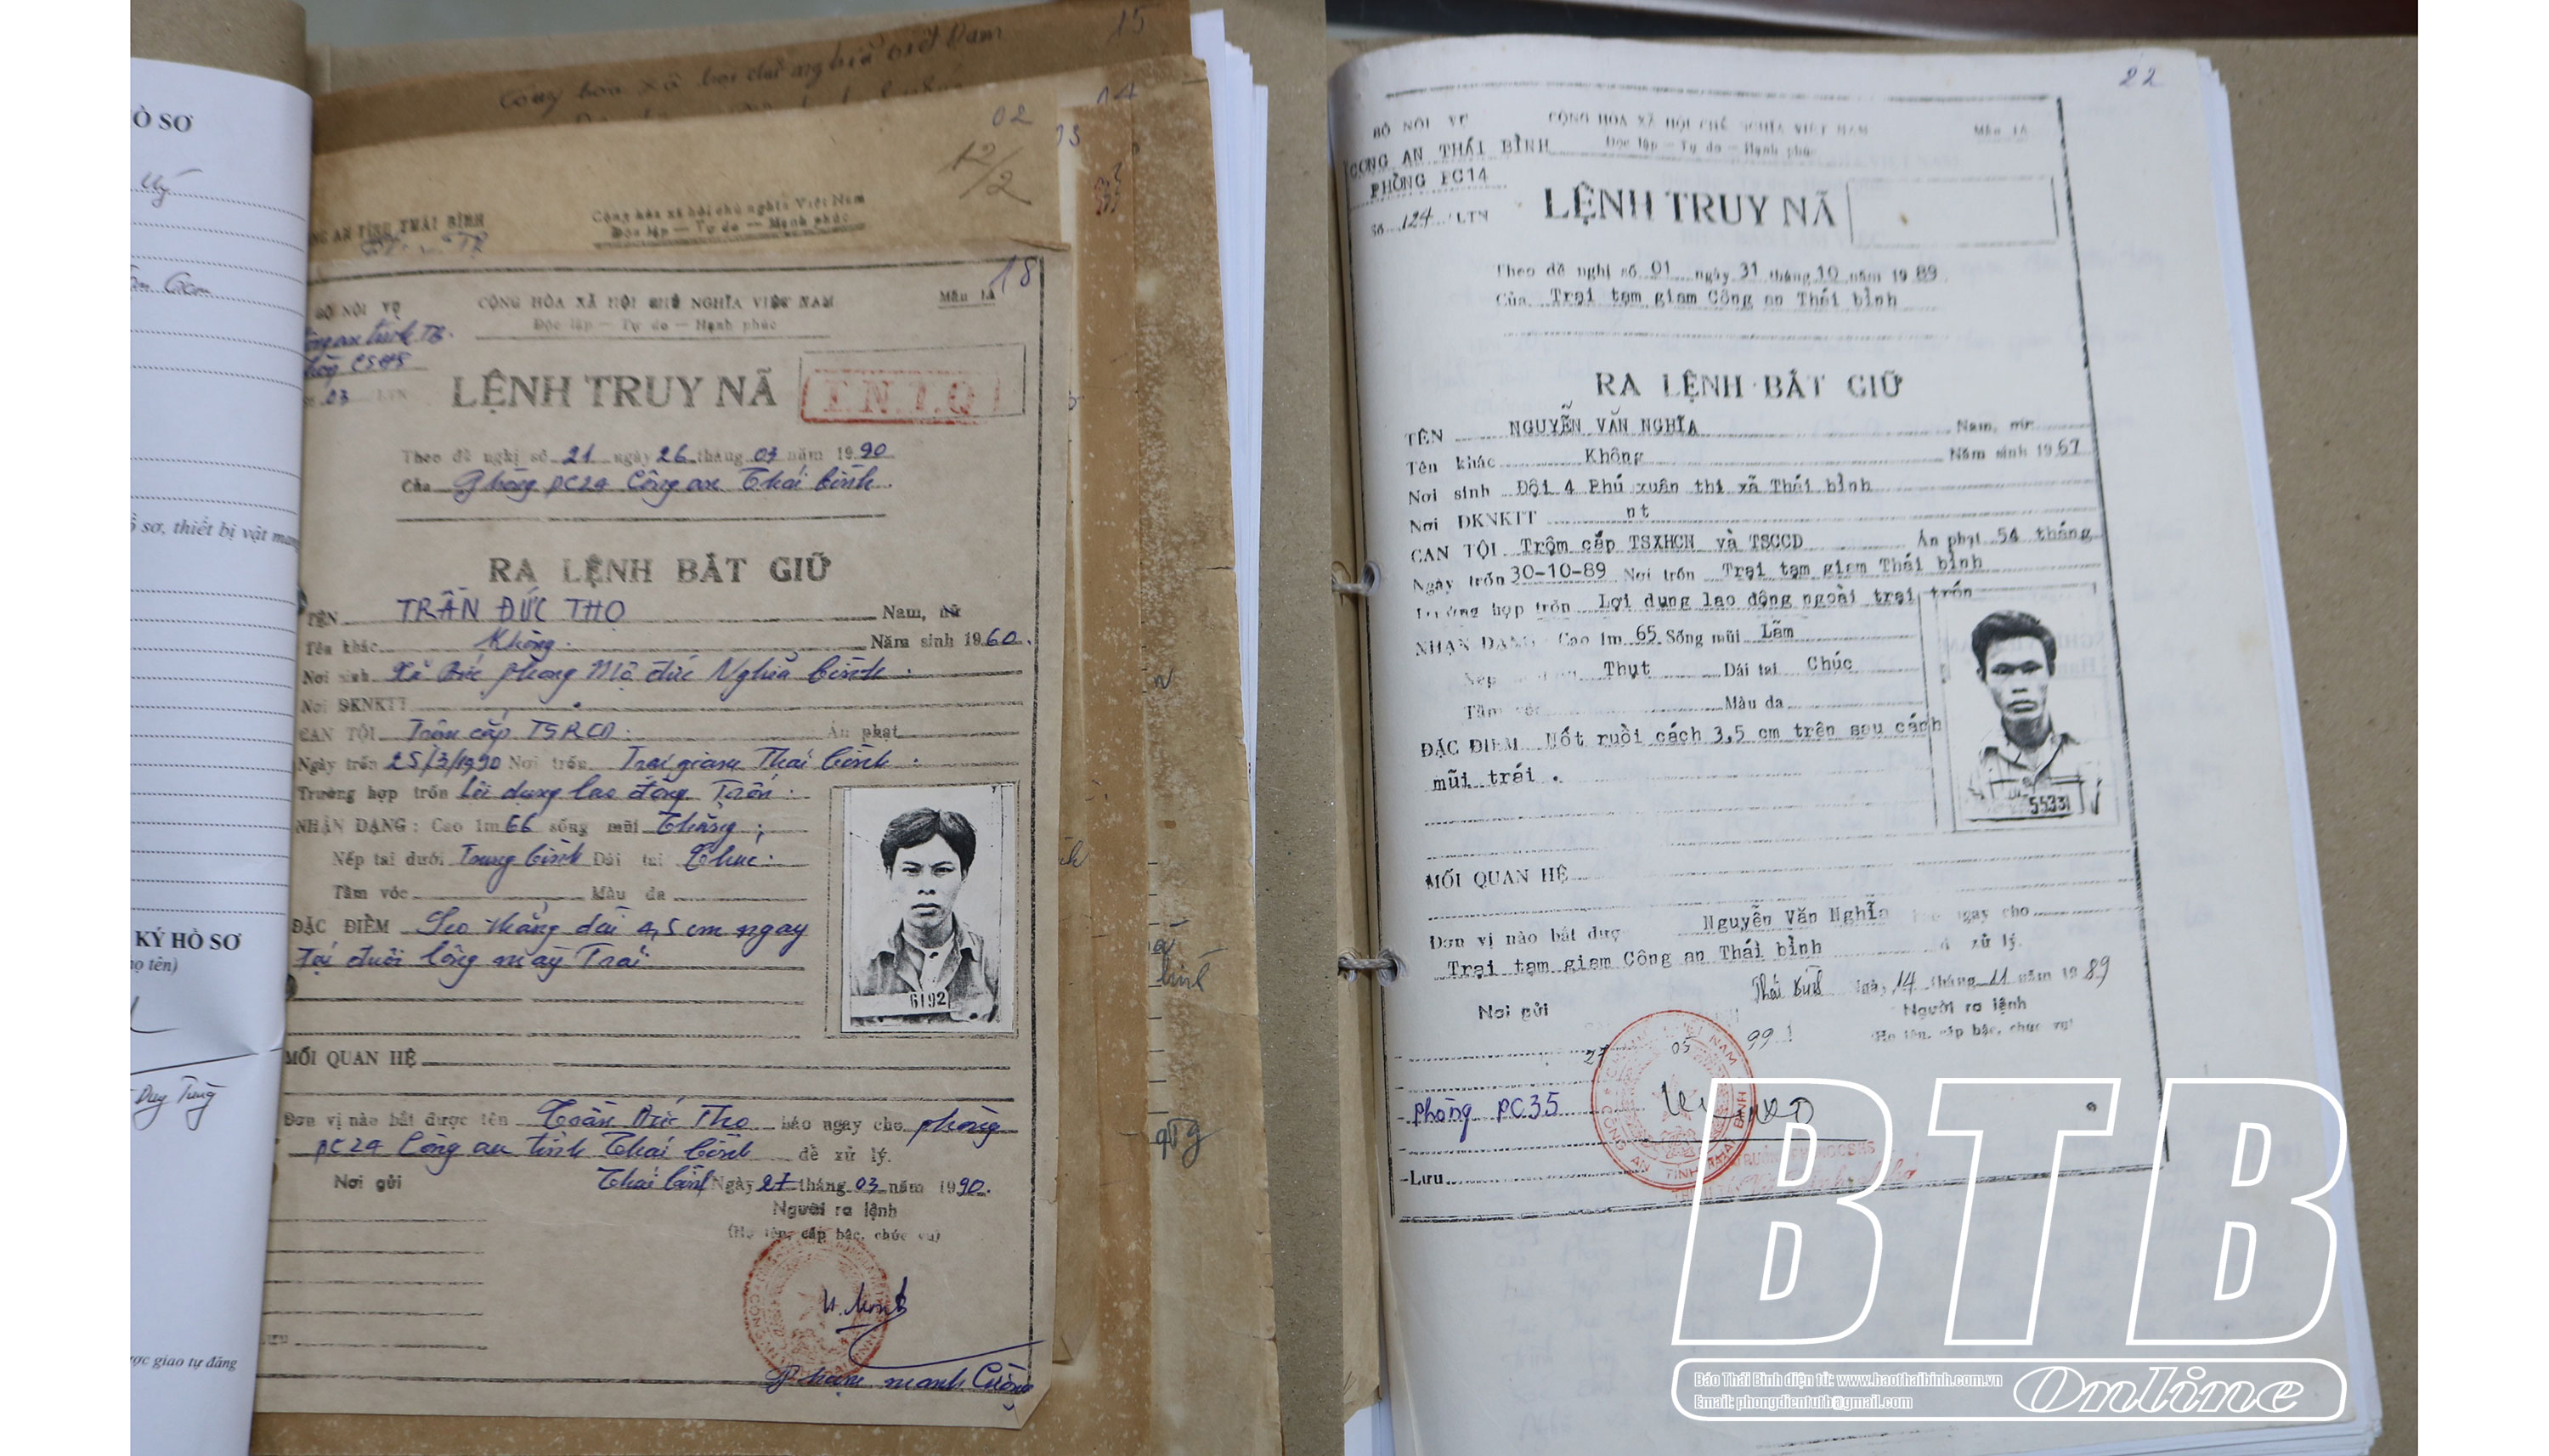 Ồ SƠ
ồ sơ, thiết bị vật mang
KÝ HỒ SƠ
họ tên)
Duy Tùng
ược giao tự đăng
15
Cộng hòa xã hội chủ nghĩa việt Nam
14
13
02
12/2
CÔNG AN TỈNH THÁI BÌNH
Cộng hòa xã hội chủ nghĩa Việt Nam
Độc lập — Tự do — Hạnh phúc
18
BỘ NỘI VỤ
CỘNG HÒA XÃ HỘI CHỦ NGHĨA VIỆT NAM
Mẫu 1A
Độc lập — Tự do — Hạnh phúc
Công an tỉnh TB.
Phòng CSHS
Số 03 LTN
LỆNH TRUY NÃ
T.N.T.Q
Theo đề nghị số 21 ngày 26 tháng 03 năm 1990
Của Phòng PC24 Công an Thái bình.
RA LỆNH BẮT GIỮ
TÊN TRẦN ĐỨC THỌ Nam, nữ
Tên khác Không. Năm sinh 1960.
Nơi sinh Xã Đức phong Mộ đức Nghĩa bình.
Nơi ĐKNKTT
CAN TỘI Trộm cắp Án phạt
Ngày trốn 25/3/1990 Nơi trốn Trại giam Thái bình.
Trường hợp trốn Lợi dụng lao động Trốn.
NHẬN DẠNG: Cao 1m66 sống mũi thẳng;
Nếp tai dưới Trung bình Dái tai Chúc.
Tầm vóc Màu da
ĐẶC ĐIỂM Sẹo thẳng dài 4,5cm ngay
tại đuôi lông mày Trái.
6192
MỐI QUAN HỆ
Đơn vị nào bắt được tên Trần Đức Thọ báo ngay cho phòng
PC24 Công an tỉnh Thái bình để xử lý.
Nơi gửi Thái bình Ngày 27 tháng 03 năm 1990.
Người ra lệnh
(Họ tên, cấp bậc, chức vụ)
Phạm mạnh Cường
22
BỘ NỘI VỤ
CỘNG HÒA XÃ HỘI CHỦ NGHĨA VIỆT NAM
Mẫu 1A
CÔNG AN THÁI BÌNH
Độc lập — Tự do — Hạnh phúc
PHÒNG PC14
Số 124 / LTN
LỆNH TRUY NÃ
Theo đề nghị số 01 ngày 31 tháng 10 năm 1989
Của Trại tạm giam Công an Thái bình
RA LỆNH BẮT GIỮ
TÊN NGUYỄN VĂN NGHĨA Nam, nữ
Tên khác Không Năm sinh 1967
Nơi sinh Đội 4 Phú xuân thị xã Thái bình
Nơi ĐKNKTT nt
CAN TỘI Trộm cắp TSXHCN và TSCCD Án phạt 54 tháng
Ngày trốn 30-10-89 Nơi trốn Trại tạm giam Thái bình
Trường hợp trốn Lợi dụng lao động ngoài trại trốn
NHẬN DẠNG Cao 1m 65 Sống mũi Lõm
Nếp Thụt Dái tai Chúc
Tầm vóc Màu da
ĐẶC ĐIỂM Nốt ruồi cách 3,5 cm trên sau cánh
mũi trái .
55331
MỐI QUAN HỆ
Đơn vị nào bắt được Nguyễn Văn Nghĩa báo ngay cho
Trại tạm giam Công an Thái bình xử lý.
Thái bình Ngày 14 tháng 11 năm 1989
Nơi gửi Người ra lệnh
(Họ tên, cấp bậc, chức vụ)
27 05 99
-Phòng PC35
-Lưu
BTB
Online
Báo Thái Bình điện tử: www.baothaibinh.com.vn
Email: phongdientutb@gmail.com